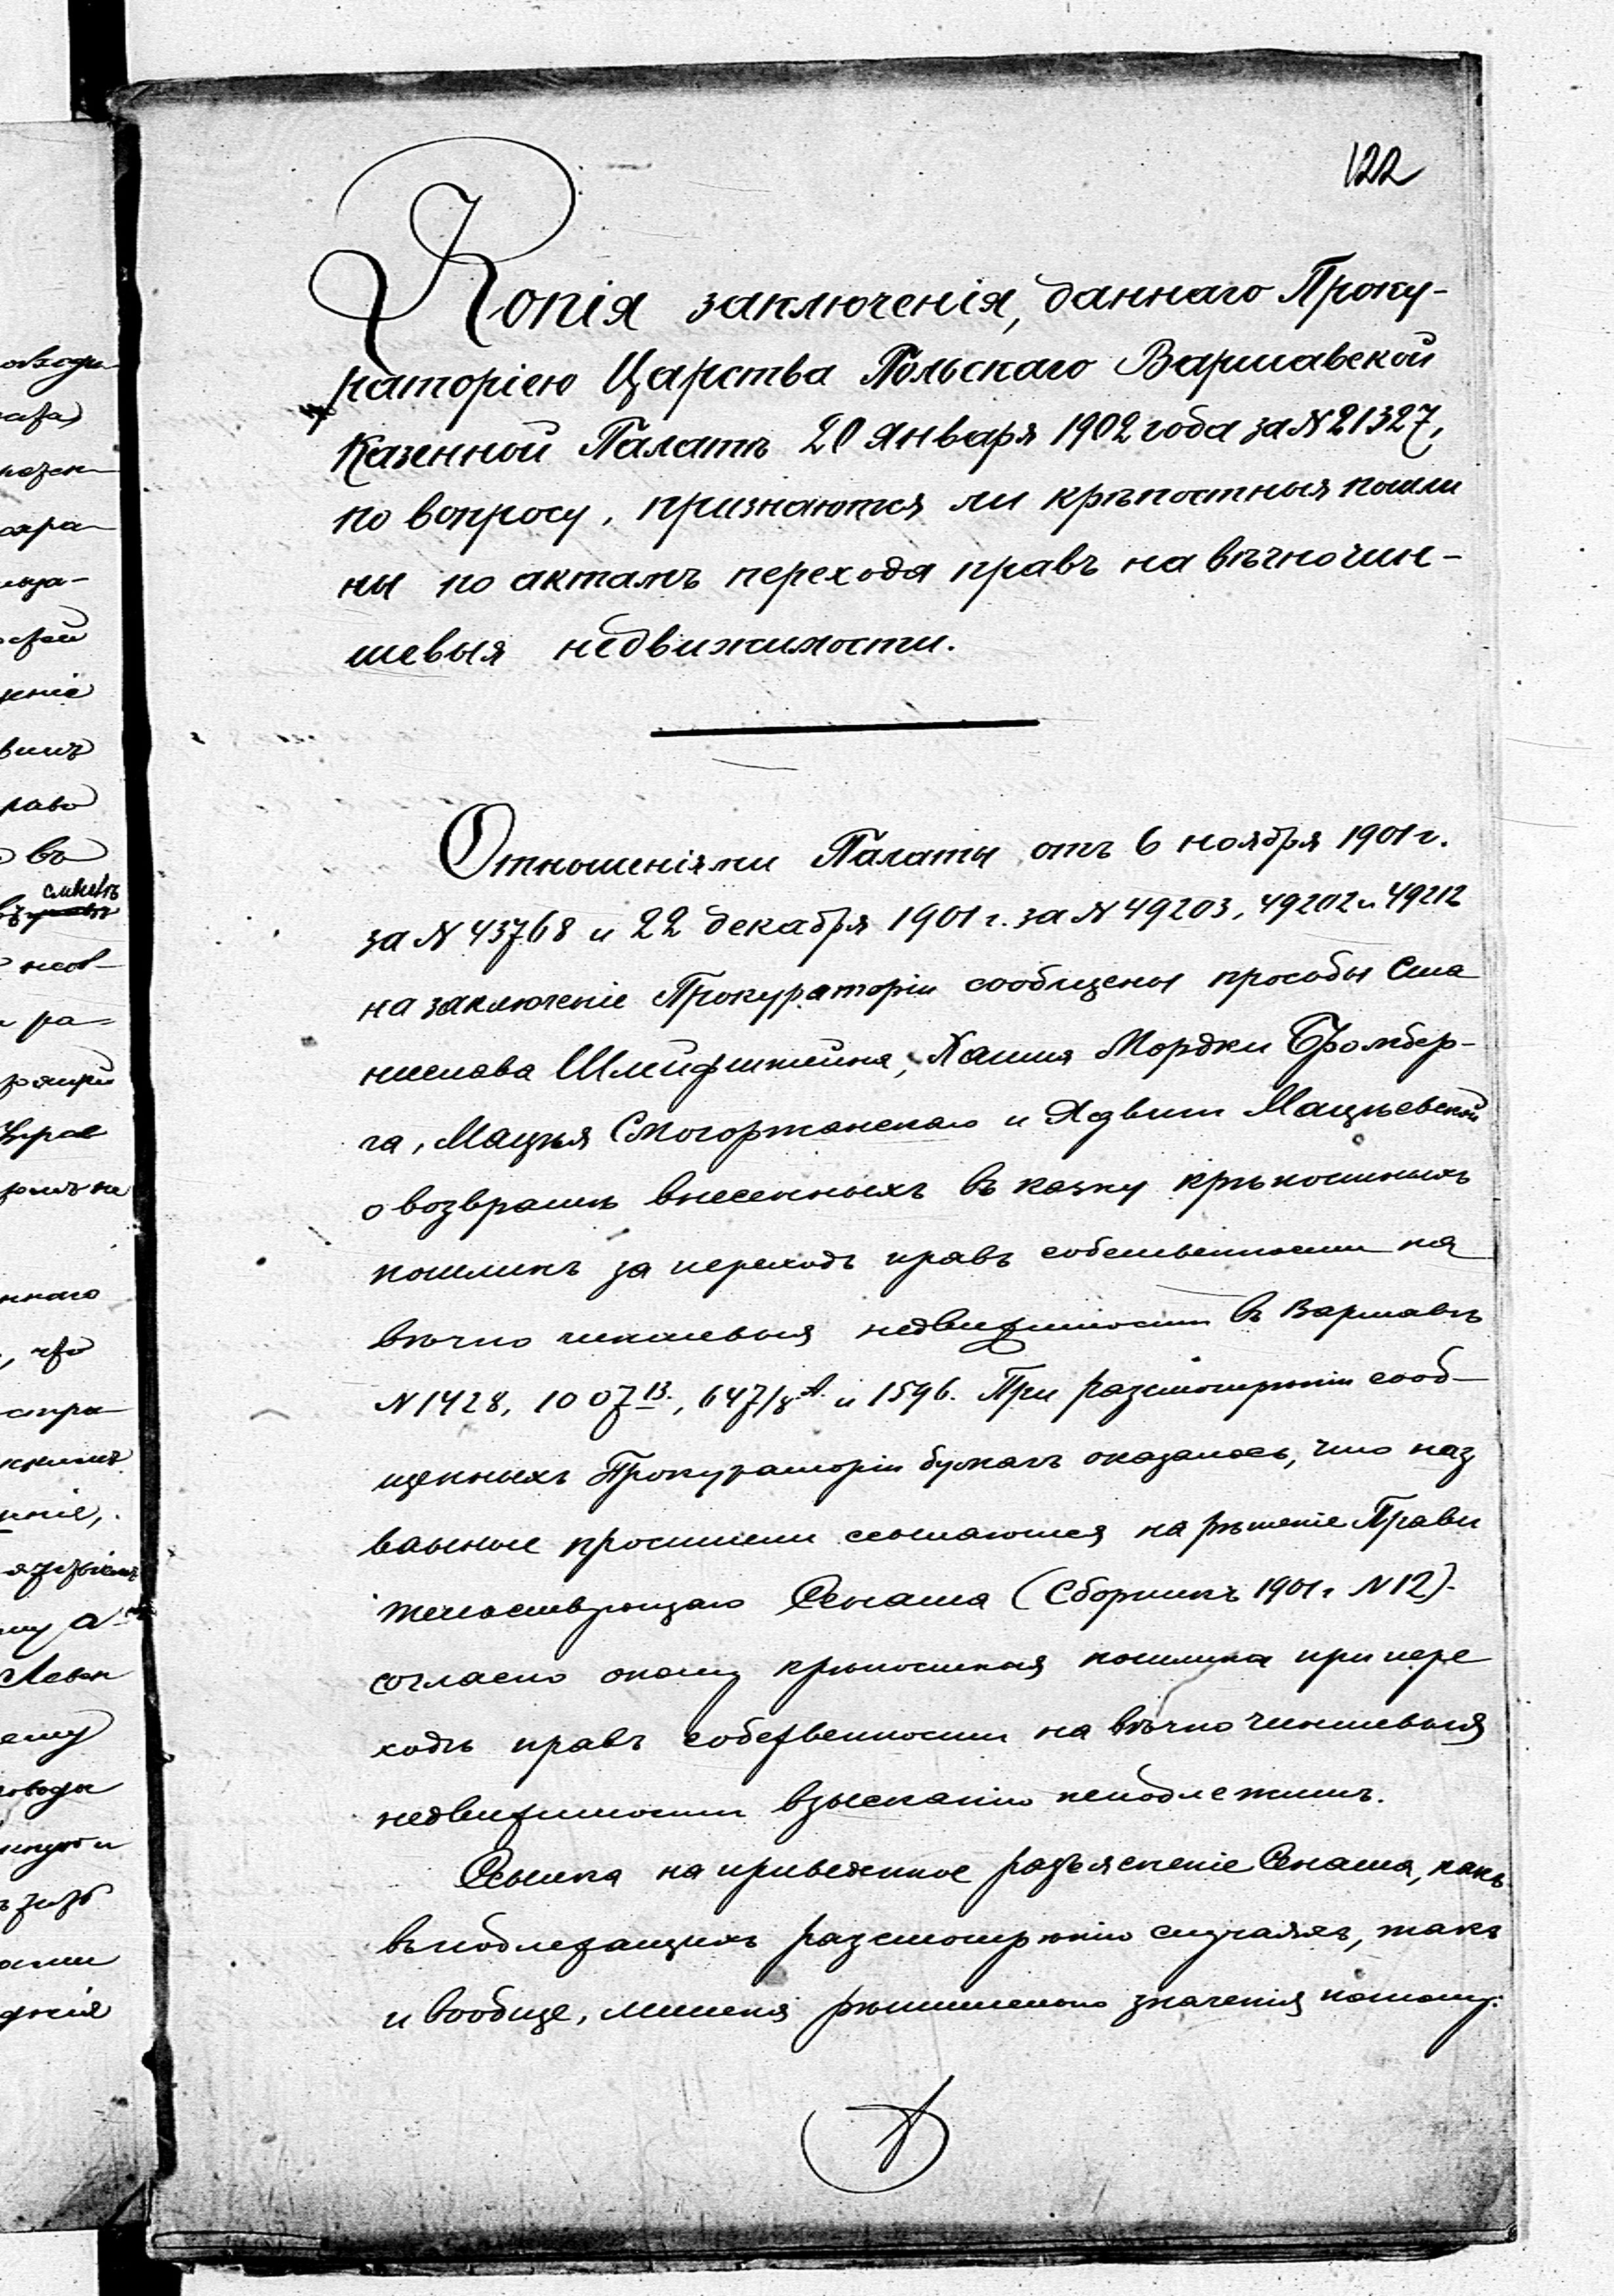 122
Копія заключенія, даннаго Проку-
раторіею Царства Польскаго Варшавской
Казенной Палатѣ 20 Января 1902 года за № 21327,
по вопросу, признаются ли крѣпостныя пошли
ны по актамъ перехода правъ на вѣчночин-
шевыя недвижимости.
Отношеніями Палаты отъ 6 ноября 1901 г.
за № 43768 и 22 декабря 1901 г. за № 49203, 49202 и 49212
на заключеніе Прокураторіи сообщены прособы Ста
нислава Шлейфштейна, Хаима Мордки Бромбер-
га, Мацѣя Смогоржанскаго и Ядвиги Мацѣевской
о возвратѣ внесенныхъ въ казну крѣпостныхъ
пошлинъ за переходъ правъ собственности на
вѣчно чиншевыя недвижимости въ Варшавѣ
№ 1428, 1007 В., 647/8 А. и 1596. При разсмотрѣніи сооб-
щенныхъ Прокураторіи бумагъ оказалось, что наз
ванные просители ссылаются на рѣшеніе Прави
тельствующаго Сената (Сборникъ 1901 г. № 12).
согласно оному крѣпостныя пошлина при пере
ходѣ правъ собственности на вѣчно чиншевыя
недвижимости взысканію неподлежитъ.
Ссылка на приведенное разъясненіе Сената, какъ
въ подлежащихъ разсмотрѣнію случаяхъ, такъ
и вообще, лишена рѣшительно значенія потому: